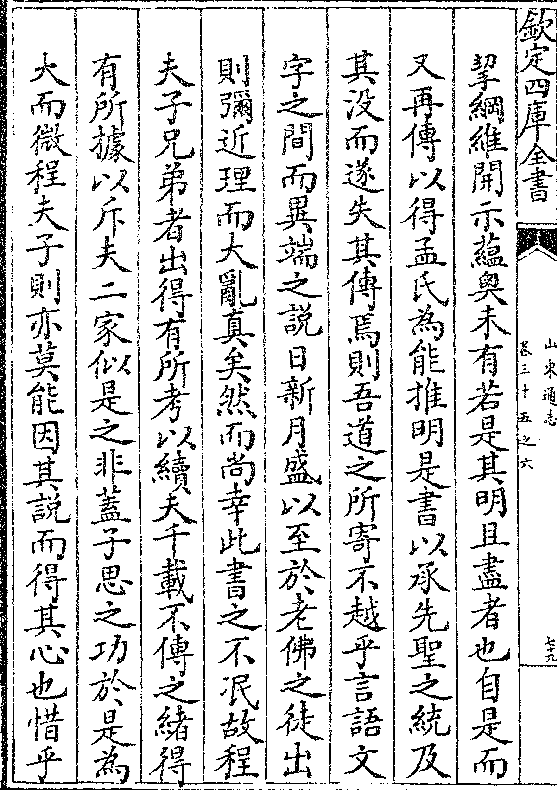 欽定四庫全書
山東通志
卷三十五之六
七十九
挈綱維開示蘊奧未有若是其明且盡者也自是而
又再傳以得孟氏為能推明是書以承先聖之統及
其没而遂失其傳焉則吾道之所寄不越乎言語文
字之間而異端之説日新月盛以至於老佛之徒出
則彌近理而大亂真矣然而尚幸此書之不泯故程
夫子兄弟者出得有所考以續夫千載不傳之緒得
有所據以斥夫二家似是之非葢子思之功於是為
大而微程夫子則亦莫能因其説而得其心也惜乎